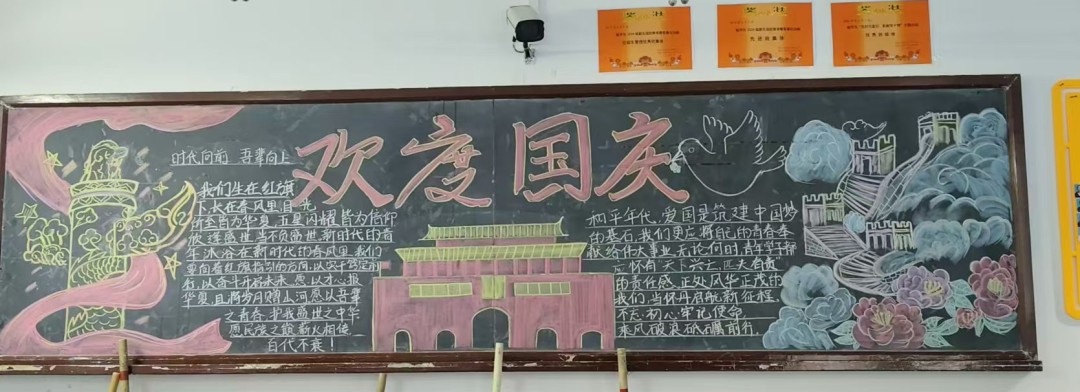 欢度国庆
时代向前 吾辈向上
我们生在红旗
下,长在春风里,目光
所至皆为华夏,五星闪耀皆为信仰
愿逢盛世,当不负盛世,新时代的青
年沐浴在新时代的春风里,我们
要向着红旗指引的方向,以实干
以奋斗开拓未来,愿以寸心报
华夏,且将岁月赠山河,愿以吾辈
之青春,护我盛世之中华
愿民族之薪火相传
百代不衰!
和平年代,爱国是筑建中国梦
的基石,我们更应将自己的青春奉
献给伟大事业,无论何时,青年学子都
应怀有天下兴亡,匹夫有责
的责任感,正处风华正茂的
我们,当怀丹启航新征程
不忘初心,牢记使命
乘风破浪,砥砺前行.